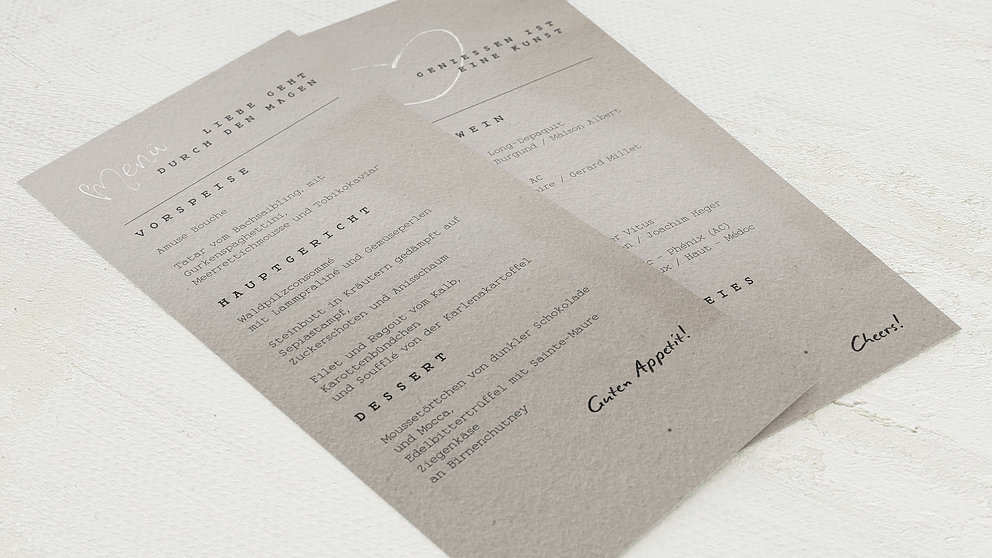 Menü
LIEBE GEHT
DURCH DEN MAGEN
VORSPEISE
Amuse Bouche
Tatar vom Bachsaibling, mit
Gurkenspaghettini,
Meerrettichmousse und Tobikokaviar
HAUPTGERICHT
Waldpilzconsommé
mit Lammpraliné und Gemüseperlen
Steinbutt in Kräutern gedämpft auf
Sepiastampf,
Zuckerschoten und Anisschaum
Filet und Ragout vom Kalb,
Karottenbündchen
und Soufflé von der Karlenakartoffel
DESSERT
Moussetörtchen von dunkler Schokolade
und Mocca,
Edelbittertrüffel mit Sainte-Maure
Ziegenkäse
an Birnenchutney
Guten Appetit!
GENIESSEN IST
EINE KUNST
WEIN
Long-Depaquit
Burgund / Maison Albert
AC
ire / Gerard Millet
er Vitus
en / Joachim Heger
c - Phénix (AC)
ux / Haut - Médoc
EIES
Cheers!